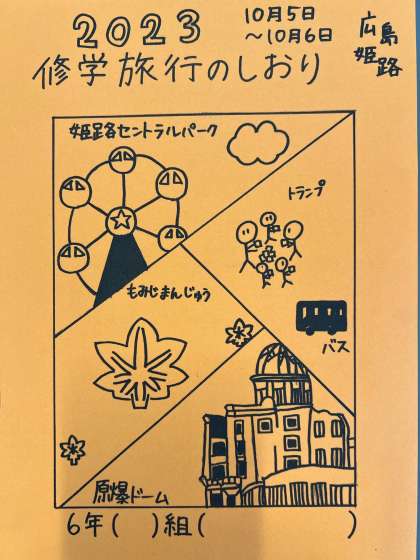 2023
10月5日
～10月6日
広島
姫路
修学旅行のしおり
姫路セントラルパーク
トランプ
もみじまんじゅう
バス
原爆ドーム
6年(　)組(　　　　　)